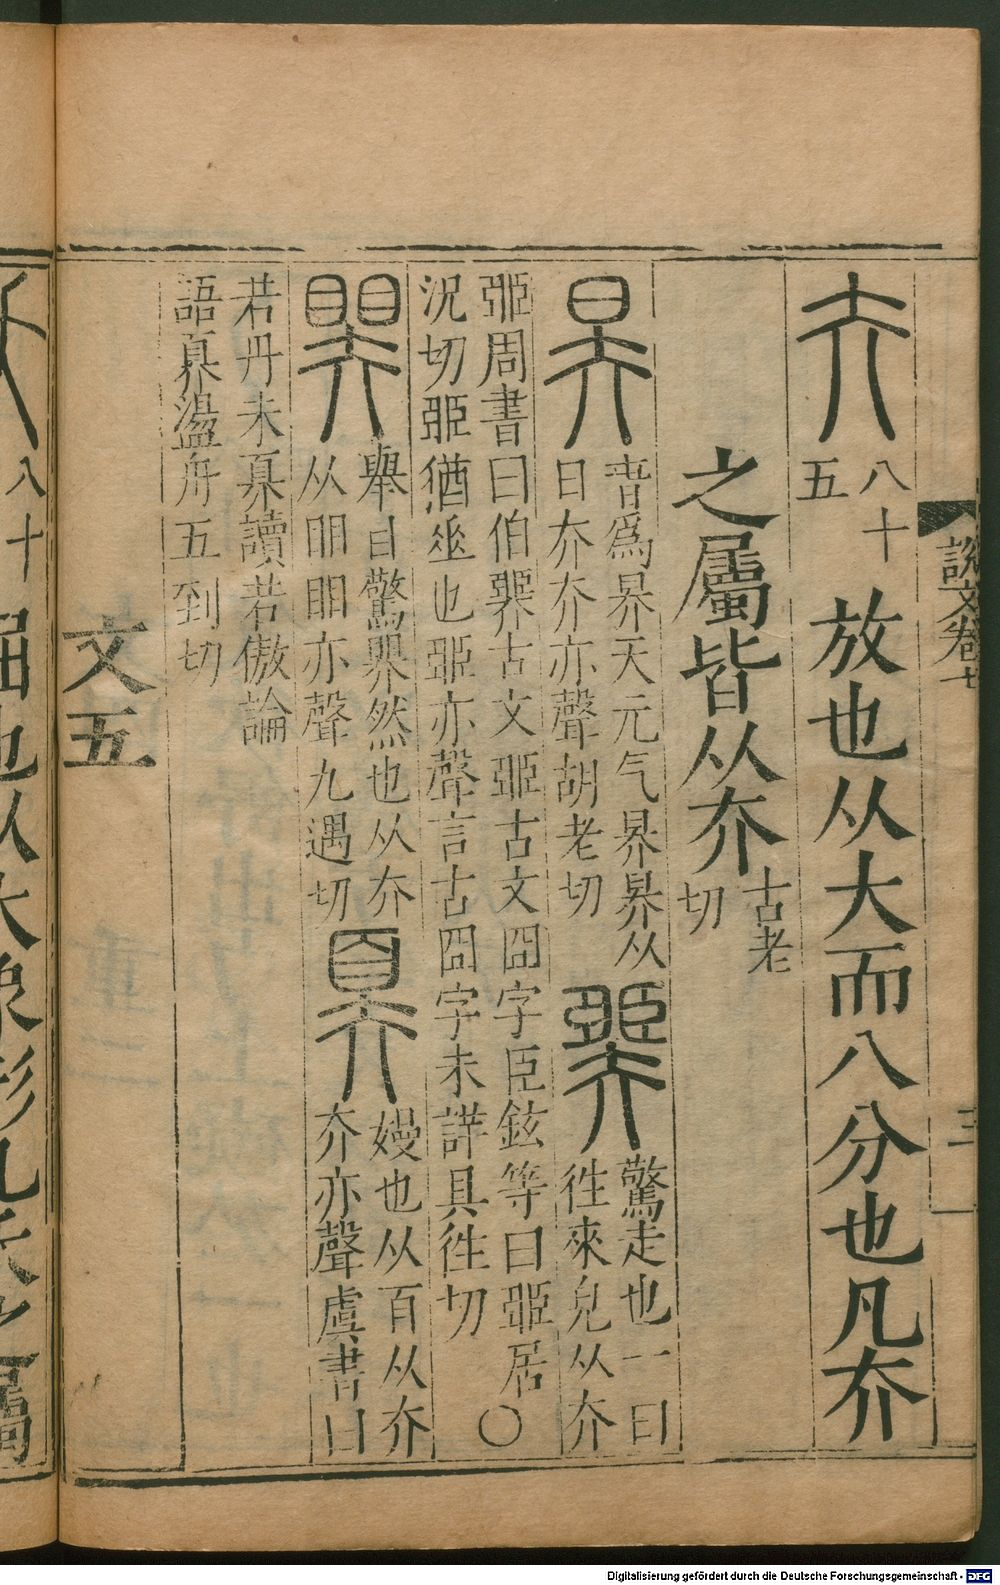 說文卷七
三
亣 八十五 放也从大而八分也凡亣
之屬皆从亣 古老切
昦 春爲昦天元气昦昦从日亣亣亦聲胡老切 㚖 驚走也一曰往來皃从亣
𦣝周書曰伯㚖古文𦣝古文囧字臣鉉等曰𦣝居○
況切𦣝猶乖也𦣝亦聲言古囧字未詳具往切
㒵 舉目驚㒵然也从亣从䀠䀠亦聲九遇切 奡 嫚也从百从亣亣亦聲虞書曰
若丹朱奡讀若傲論
語奡盪舟五到切
文五
八十
Digitalisierung gefördert durch die Deutsche Forschungsgemeinschaft - DFG